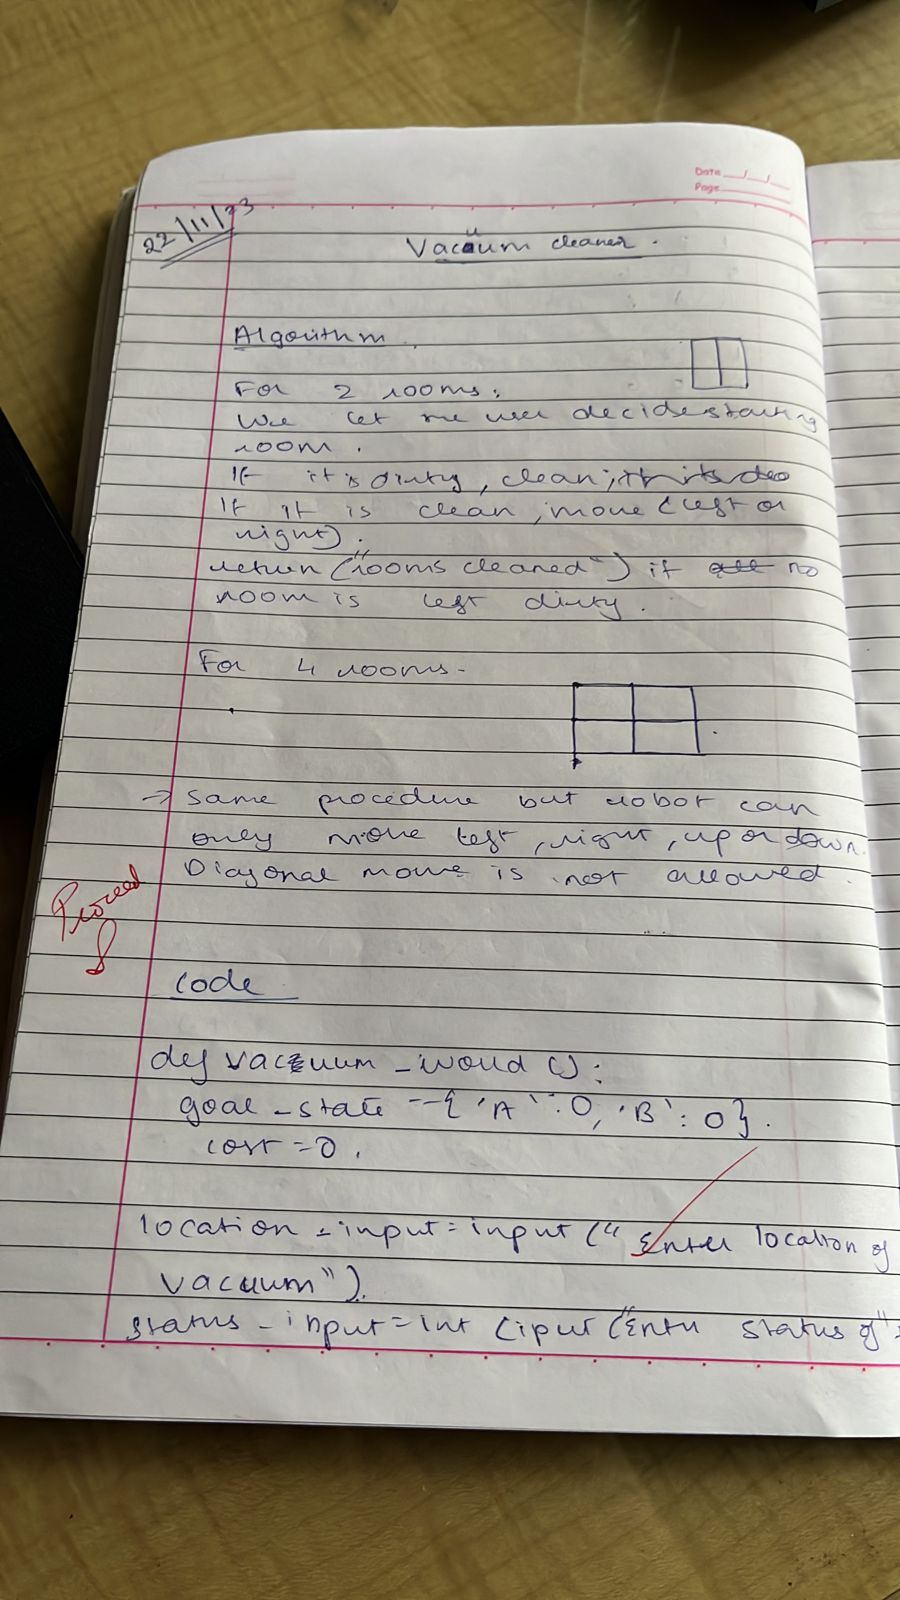 Date
Page
22/11/23
Vacuum cleaner.
Algorithm
For 2 rooms.
We let the user decide starting
room.
If it is dirty, clean;
If it is clean, move (left or
right).
return ("rooms cleaned") if all no
room is left dirty.
For 4 rooms-
→ Same procedure but robot can
only move left, right, up or down.
Diagonal move is not allowed.
Proceed
code
def vacuum_world():
goal_state = {'A':0, 'B':0}.
cost=0.
location_input=input("Enter location of
vacuum").
status_input=int (iput ("Enter status of"